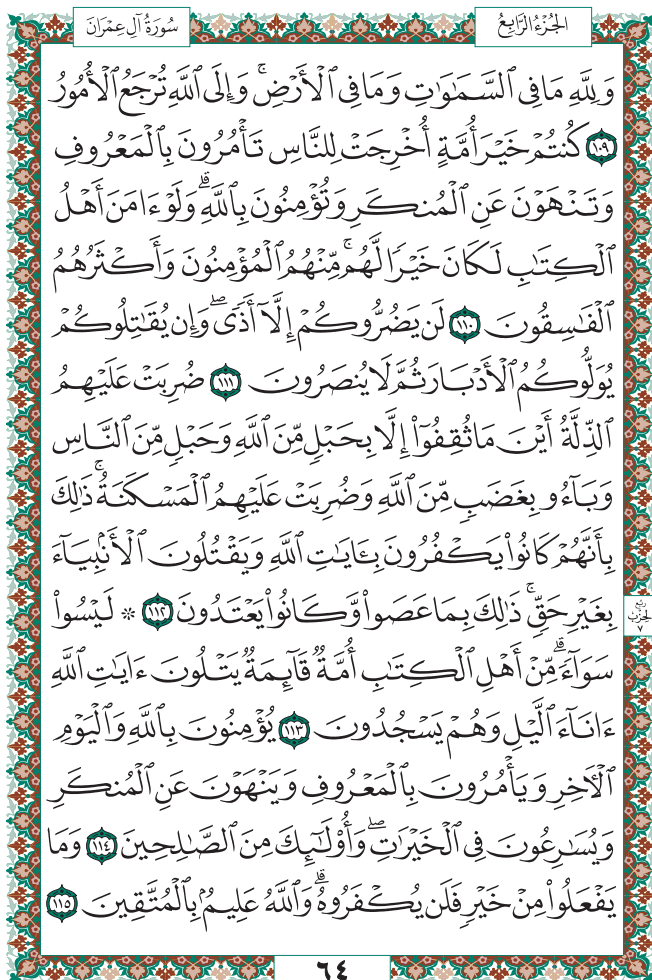 سُورَةُ آلِ عِمْرَانَ الجُزْءُ الرَّابِعُ
وَلِلَّهِ مَا فِي ٱلسَّمَٰوَٰتِ وَمَا فِي ٱلْأَرْضِۚ وَإِلَى ٱللَّهِ تُرْجَعُ ٱلْأُمُورُ
١٠٩ كُنتُمْ خَيْرَ أُمَّةٍ أُخْرِجَتْ لِلنَّاسِ تَأْمُرُونَ بِٱلْمَعْرُوفِ
وَتَنْهَوْنَ عَنِ ٱلْمُنكَرِ وَتُؤْمِنُونَ بِٱللَّهِۗ وَلَوْ ءَامَنَ أَهْلُ
ٱلْكِتَٰبِ لَكَانَ خَيْرًا لَّهُمۚ مِّنْهُمُ ٱلْمُؤْمِنُونَ وَأَكْثَرُهُمُ
ٱلْفَٰسِقُونَ ١١٠ لَن يَضُرُّوكُمْ إِلَّآ أَذًىۖ وَإِن يُقَٰتِلُوكُمْ
يُوَلُّوكُمُ ٱلْأَدْبَارَ ثُمَّ لَا يُنصَرُونَ ١١١ ضُرِبَتْ عَلَيْهِمُ
ٱلذِّلَّةُ أَيْنَ مَا ثُقِفُوٓاْ إِلَّا بِحَبْلٍ مِّنَ ٱللَّهِ وَحَبْلٍ مِّنَ ٱلنَّاسِ
وَبَآءُو بِغَضَبٍ مِّنَ ٱللَّهِ وَضُرِبَتْ عَلَيْهِمُ ٱلْمَسْكَنَةُۚ ذَٰلِكَ
بِأَنَّهُمْ كَانُواْ يَكْفُرُونَ بِـَٔايَٰتِ ٱللَّهِ وَيَقْتُلُونَ ٱلْأَنۢبِيَآءَ
بِغَيْرِ حَقٍّۚ ذَٰلِكَ بِمَا عَصَواْ وَّكَانُواْ يَعْتَدُونَ ١١٢ ۞ لَيْسُواْ
رُبْعُ الحِزْبِ ٧
سَوَآءًۗ مِّنْ أَهْلِ ٱلْكِتَٰبِ أُمَّةٌ قَآئِمَةٌ يَتْلُونَ ءَايَٰتِ ٱللَّهِ
ءَانَآءَ ٱلَّيْلِ وَهُمْ يَسْجُدُونَ ١١٣ يُؤْمِنُونَ بِٱللَّهِ وَٱلْيَوْمِ
ٱلْأٓخِرِ وَيَأْمُرُونَ بِٱلْمَعْرُوفِ وَيَنْهَوْنَ عَنِ ٱلْمُنكَرِ
وَيُسَٰرِعُونَ فِي ٱلْخَيْرَٰتِۖ وَأُوْلَٰٓئِكَ مِنَ ٱلصَّٰلِحِينَ ١١٤ وَمَا
يَفْعَلُواْ مِنْ خَيْرٍ فَلَن يُكْفَرُوهُۗ وَٱللَّهُ عَلِيمُۢ بِٱلْمُتَّقِينَ ١١٥
٦٤